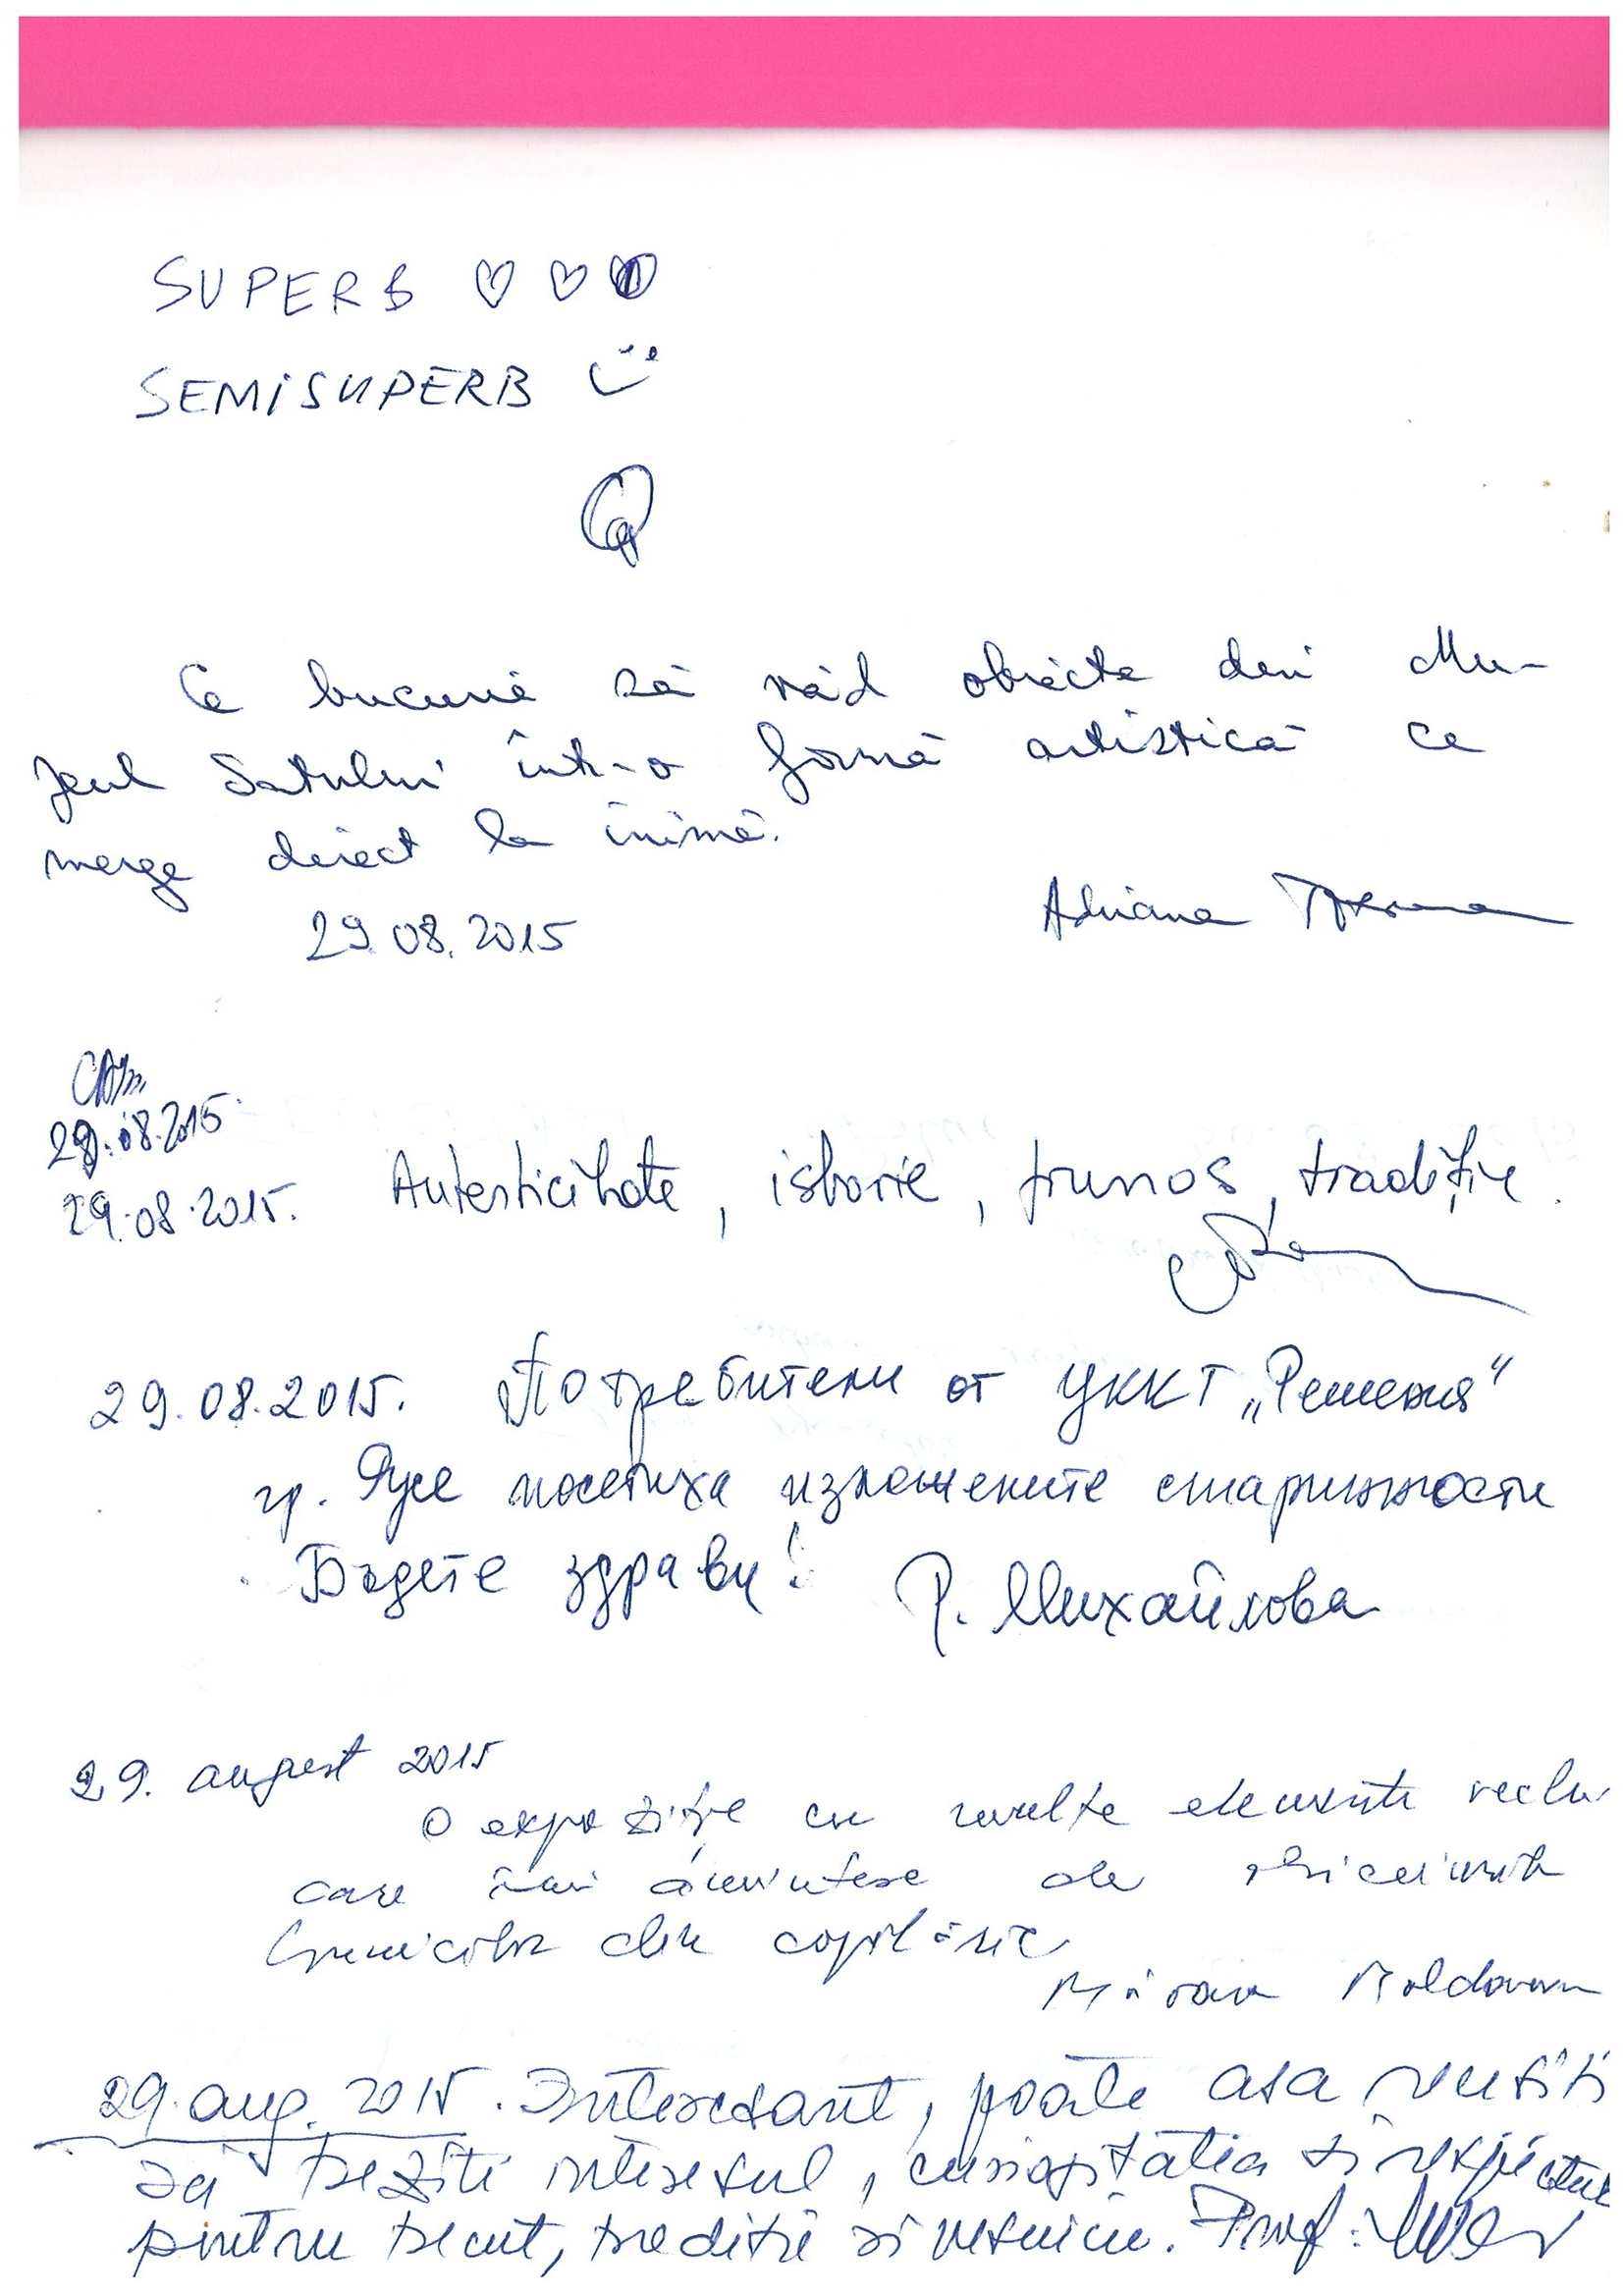 SUPERB
SEMISUPERB
Ce bucurie să văd obiecte din Mu-
zeul Satului într-o formă artistică ce
merge direct la inimă.
29.08.2015 Adriana
29.08.2015
29.08.2015. Autenticitate, istorie, frumos, tradiție.
29.08.2015. Потребители от ЦККТ „Решения"
гр. Русе посетиха изложените старинности
Бъдете здрави! Р. Михайлова
29. august 2015
O expoziție cu multe elemente vechi
care îmi amintesc de
bunicilor din copilărie
Moldovan
29. aug. 2015. Interesant, poate asa reusiti
să treziti interesul, curiozitatea si respectul
pentru trecut, traditie si Prof.